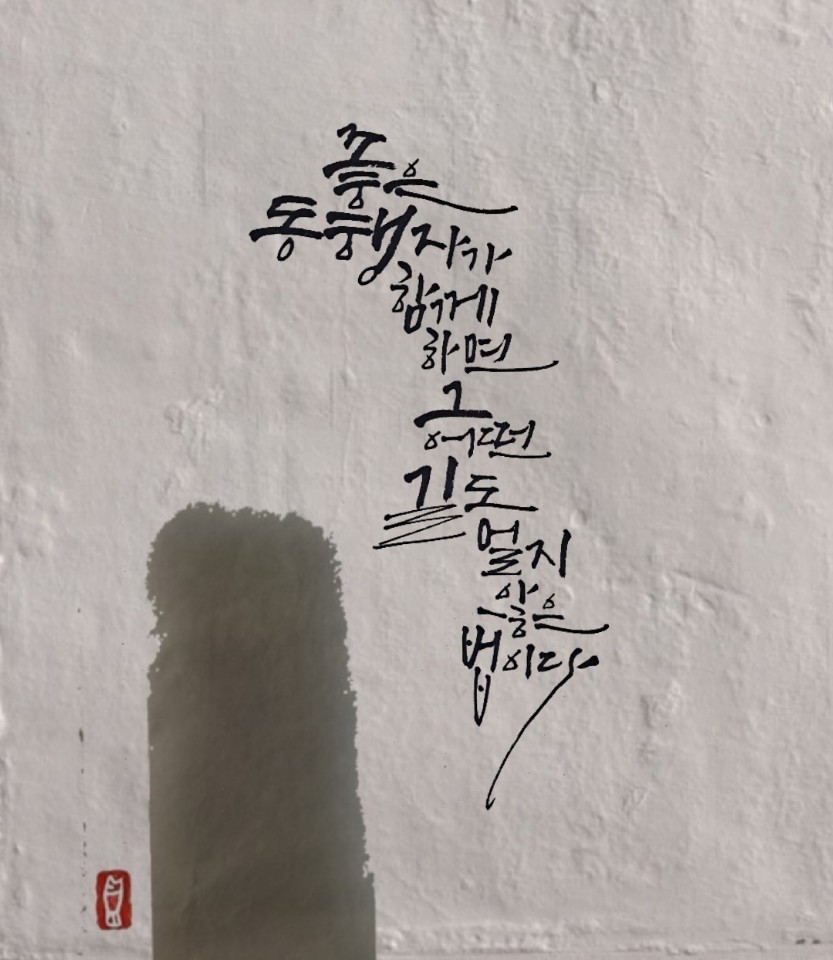 좋은
동행자가
함께
하면
그
어떤
길도
멀지
않은
법이다